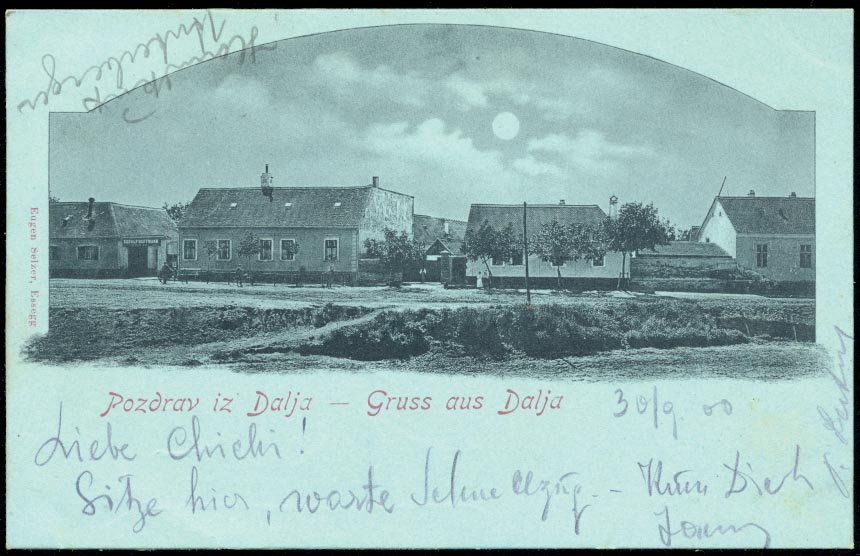 Eugen Selzer, Essegg
Pozdrav iz Dalja — Gruss aus Dalja
30/9 00
Liebe Chichi!
Sitze hier, warte Schnellzug. – Küss Dich